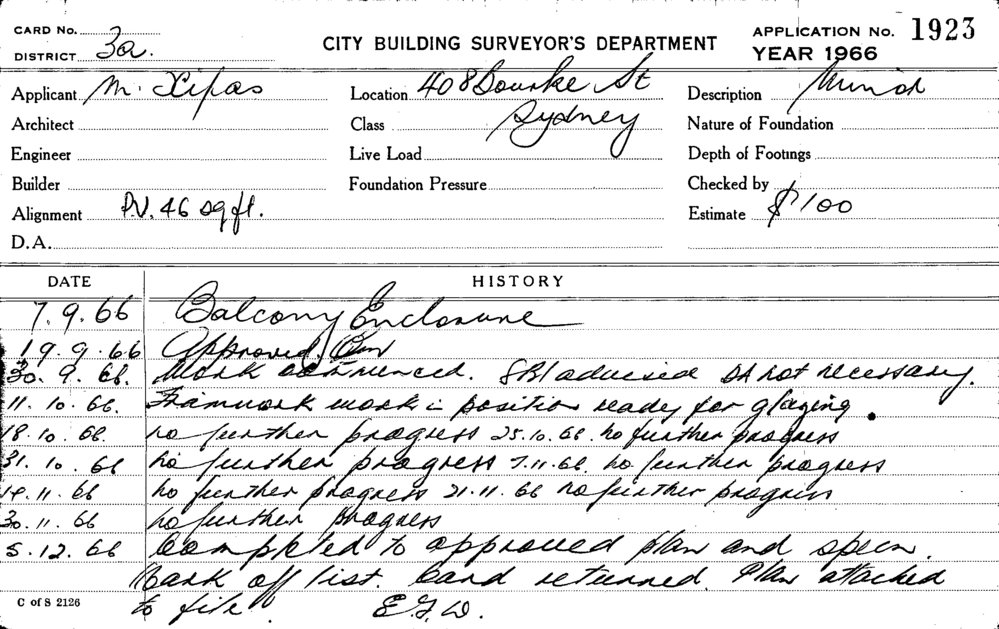 CARD No.
DISTRICT 3a.
CITY BUILDING SURVEYOR'S DEPARTMENT
APPLICATION No. 1923
YEAR 1966
Applicant M. Xipas
Location 408 Bourke St
Description Minor
Architect
Class Sydney
Nature of Foundation
Engineer
Live Load
Depth of Footings
Builder
Foundation Pressure
Checked by
Alignment P.V. 46 sq ft.
Estimate $100
D.A.
DATE HISTORY
7.9.66 Balcony Enclosure
19.9.66 Approved
30.9.66. Work commenced. SBI advised DA not necessary.
11.10.66. Framwork work in position ready for glazing.
18.10.66. no further progress 25.10.66. no further progress
31.10.66 no further progress 7.11.66. no further progress
14.11.66 no further progress 21.11.66 no further progress
30.11.66 no further progress
5.12.66 Completed to approved plan and specn.
Mark off list. Card returned. Plan attached
to file. E.G.W.
C of S 2126